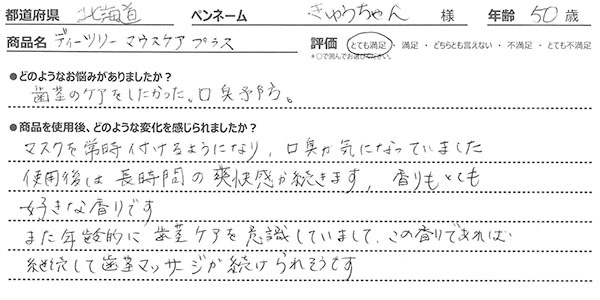 都道府県 北海道 ペンネーム きゅうちゃん 様 年齢 50 歳
商品名 ティーツリー マウスケア プラス 評価 とても満足 ・ 満足 ・ どちらとも言えない ・ 不満足 ・ とても不満足
*○で囲んでお選びください。
●どのようなお悩みがありましたか?
歯茎のケアをしたかった。口臭予防。
●商品を使用後、どのような変化を感じられましたか?
マスクを常時付けるようになり、口臭が気になっていました
使用後は長時間の爽快感が続きます、香りもとても
好きな香りです
また年齢的に歯茎ケアを意識していまして、この香りであれば
継続して歯茎マッサージが続けられそうです